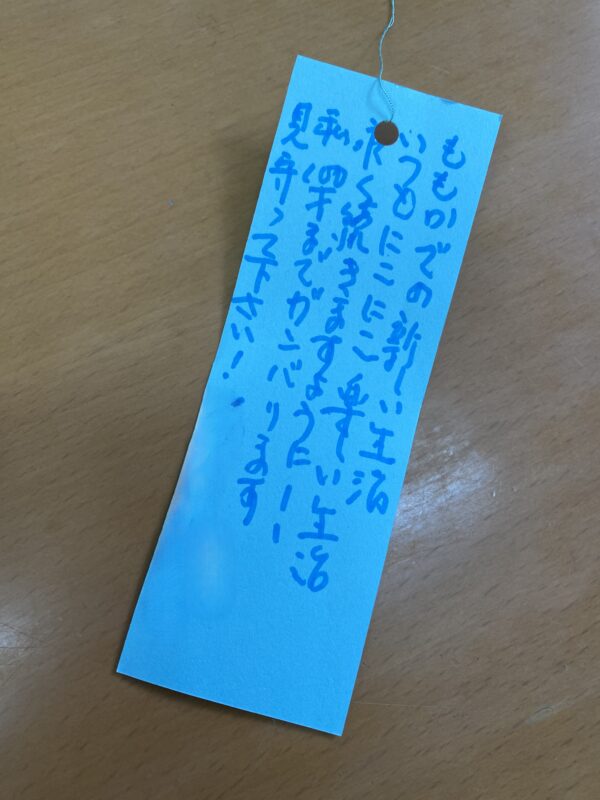 ももかでの新しい生活
いつもにこにこ楽しい生活
永く続きますように!!
私 才までガンバリます
見守って下さい!